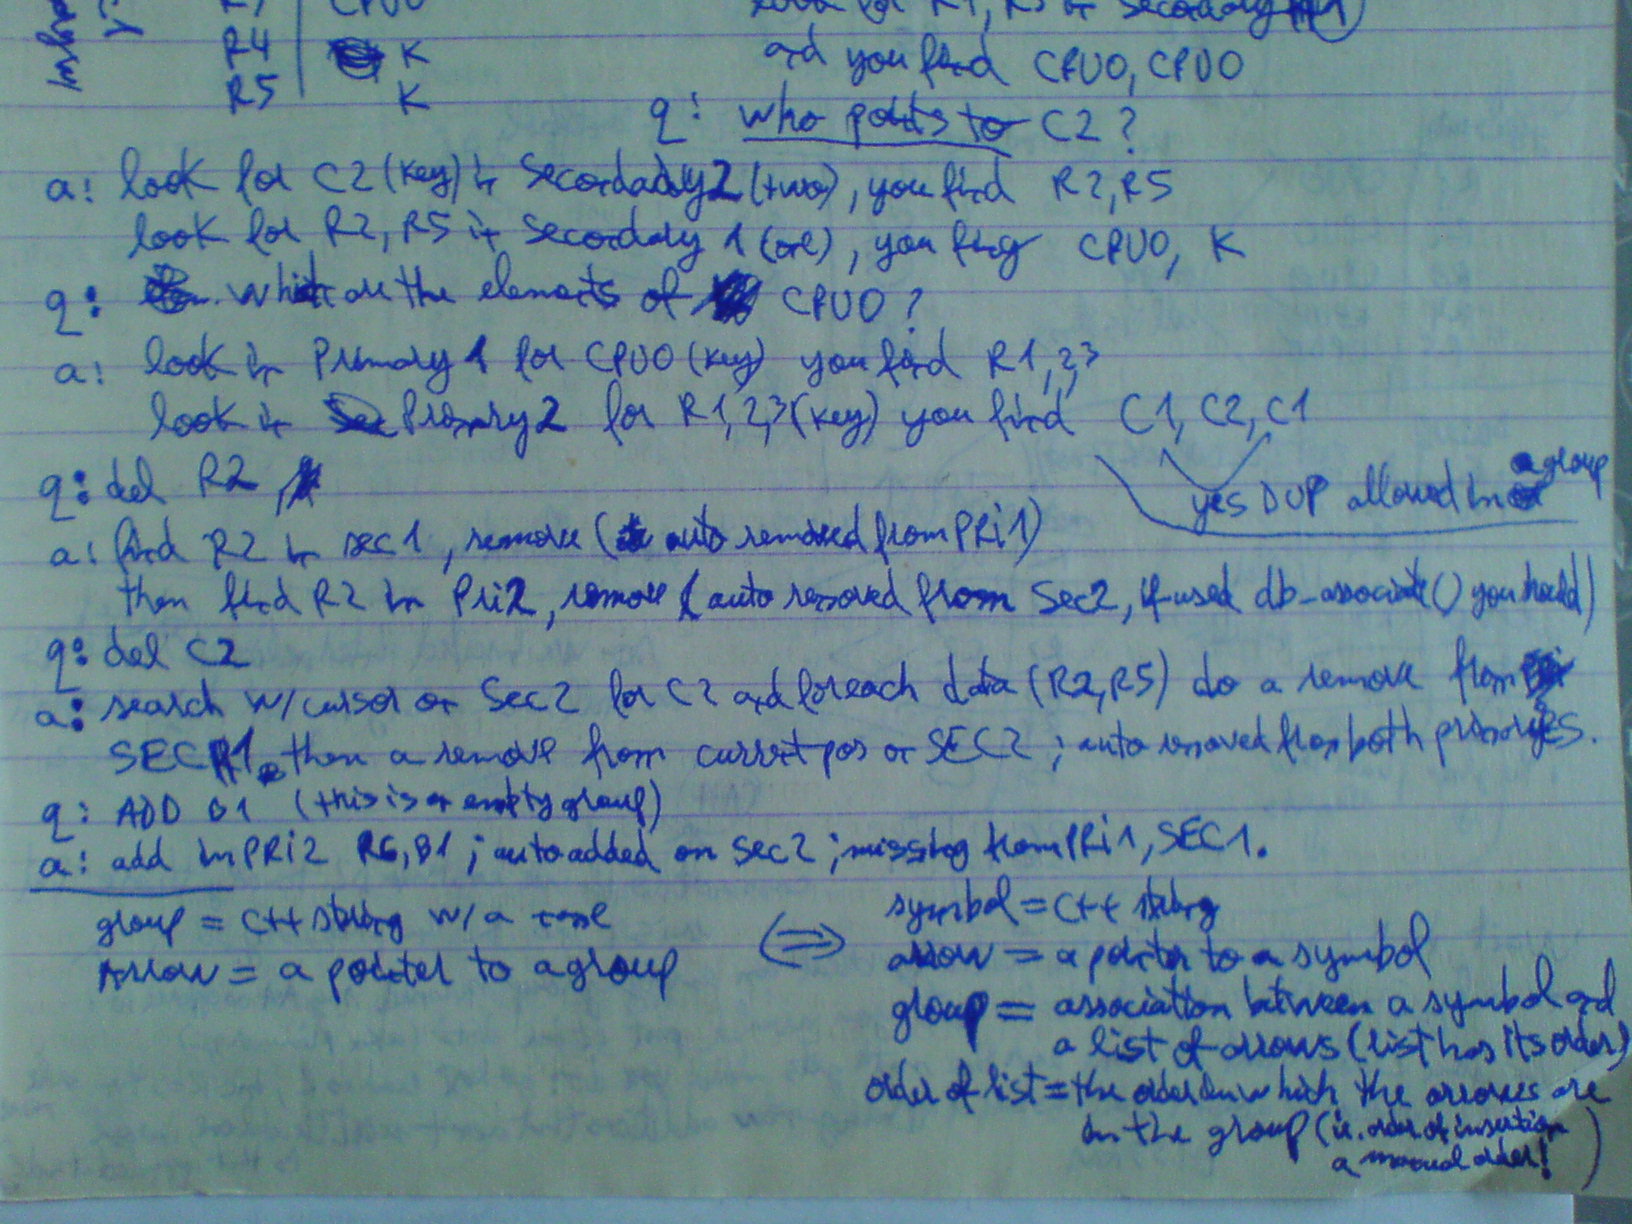 R4 K
R5 K
and you find CPU0, CPU0
q: who points to C2?
a: look for C2 (key) in Secondady2 (two), you find R2, R5
look for R2, R5 in Secondary 1 (one), you fing CPU0, K
q: which are the elements of CPU0?
a: look in Primary 1 for CPU0 (key) you find R1,2,3
look in Primary2 for R1,2,3 (key) you find C1, C2, C1
yes DUP allowed in a group
q: del R2
a: find R2 in sec1, remove (auto removed from PRi1)
then find R2 in Pri2, remove (auto removed from Sec2, if used db_associate() you should)
q: del C2
a: search w/cursor on Sec2 for C2 and foreach data (R2,R5) do a remove from
SEC1, then a remove from current pos on SEC2; auto removed from both primaryes.
q: ADD B1 (this is an empty group)
a: add in PRi2 R6,B1; auto added on Sec2; missing from PRi1, SEC1.
group = C++ string w/a name
Arrow = a pointer to a group
<=>
symbol = C++ string
arrow = a pointer to a symbol
group = association between a symbol and
a list of arrows (list has its order)
order of list = the order in which the arrows are
in the group (ie. order of insertion
a manual order!)